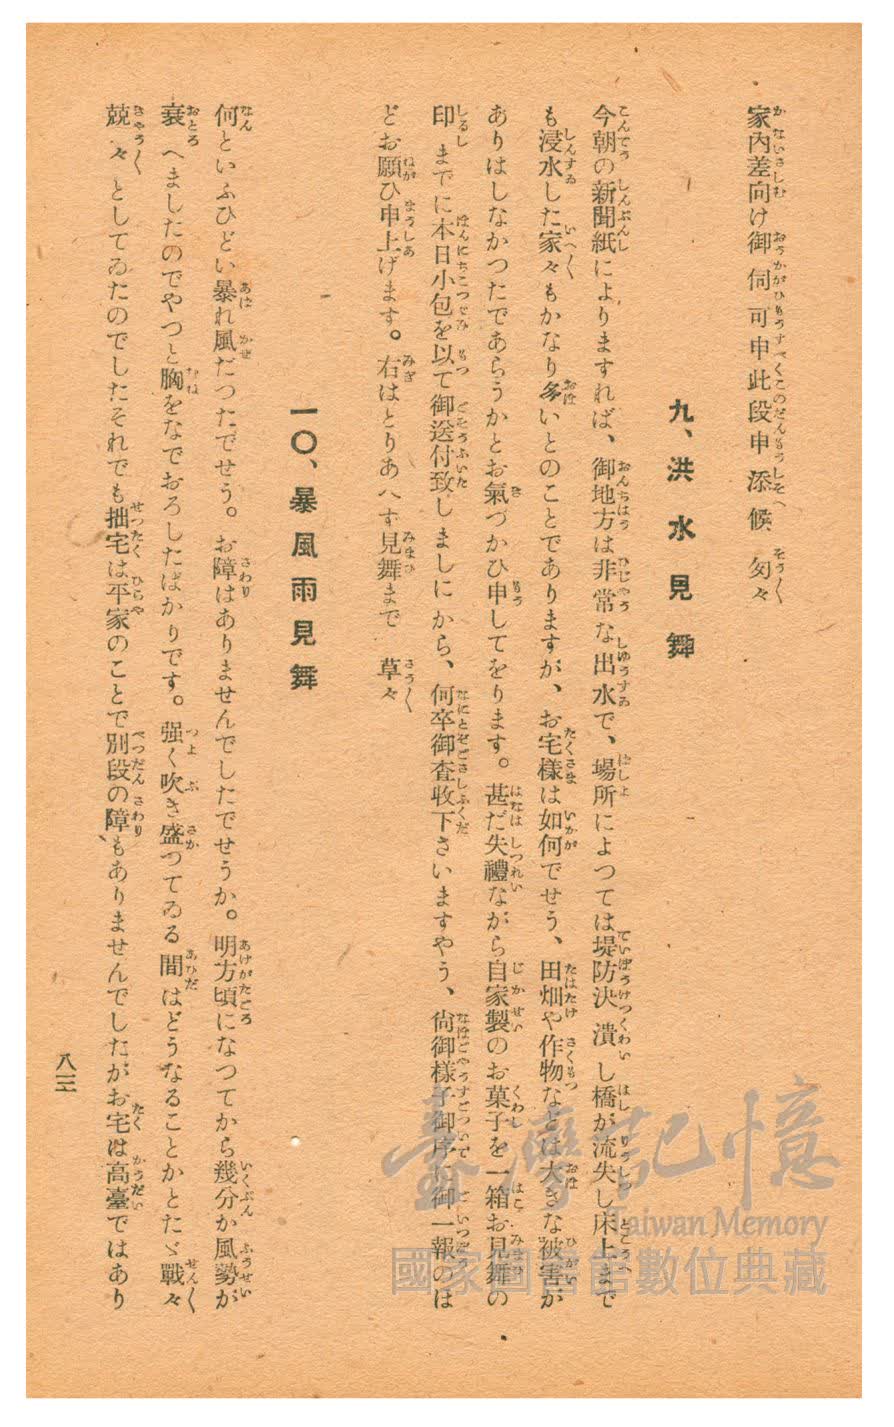 家內差向け御伺可申此段申添候、匆々
九、洪水見舞
今朝の新聞紙によりますれば、御地方は非常な出水で、場所によつては堤防決潰し橋が流失し床上まで
も浸水した家々もかなり多いとのことでありますが、お宅樣は如何でせう、田畑や作物などは大きな被害が
ありはしなかつたであらうかとお氣づかひ申してをります。甚だ失禮ながら自家製のお菓子を一箱お見舞の
印までに本日小包を以て御送付致しましにから、何卒御査收下さいますやう、尙御樣子御序に御一報のほ
どお願ひ申上げます。右はとりあへず見舞まで 草々
一〇、暴風雨見舞
何といふひどい暴れ風だつたでせう。お障はありませんでしたでせうか。明方頃になつてから幾分か風勢が
衰へましたのでやつと胸をなでおろしたばかりです。强く吹き盛つてゐる間はどうなることかとたゞ戰々
兢々としてゐたのでしたそれでも拙宅は平家のことで別段の障もありませんでしたがお宅は高臺ではあり
八三
臺灣記憶
Taiwan Memory
國家圖書館數位典藏